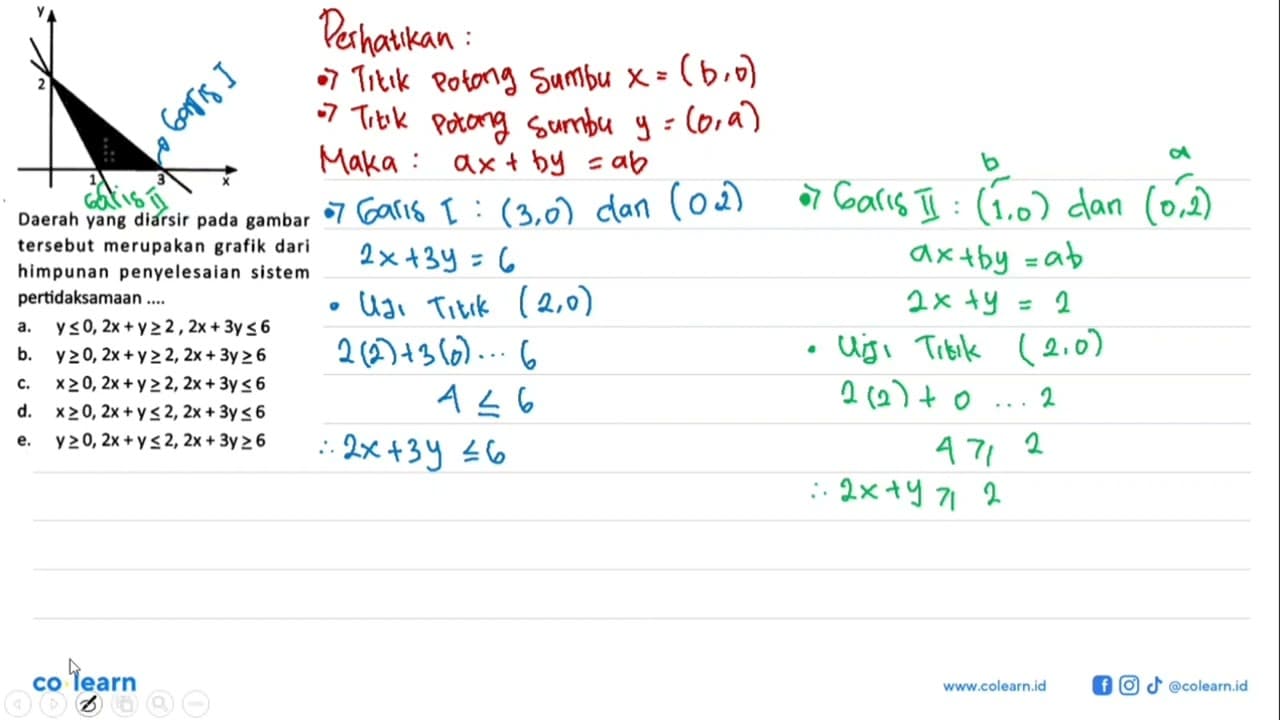 y
2
1
3
x
Garis I
Garis II
Daerah yang diarsir pada gambar
tersebut merupakan grafik dari
himpunan penyelesaian sistem
pertidaksamaan ....
a. y ≤ 0, 2x + y ≥ 2 , 2x + 3y ≤ 6
b. y ≥ 0, 2x + y ≥ 2, 2x + 3y ≥ 6
c. x ≥ 0, 2x + y ≥ 2, 2x + 3y ≤ 6
d. x ≥ 0, 2x + y ≤ 2, 2x + 3y ≤ 6
e. y ≥ 0, 2x + y ≤ 2, 2x + 3y ≥ 6
Perhatikan :
Titik Potong Sumbu x = (b,0)
Titik Potong Sumbu y = (0,a)
Maka : ax + by = ab
Garis I : (3,0) dan (0 2)
2x + 3y = 6
• Uji Titik (2,0)
2(2) + 3(0) ... 6
4 ≤ 6
∴ 2x + 3y ≤ 6
b a
Garis II : (1,0) dan (0,2)
ax + by = ab
2x + y = 2
• Uji Titik (2,0)
2(2) + 0 ... 2
4 ≥ 2
∴ 2x + y ≥ 2
co learn
www.colearn.id
@colearn.id